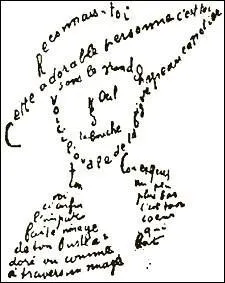 Reconnais-toi
Cette adorable personne c'est toi
Sous le grand chapeau canotier
Œil
Nez
la bouche
Voici l'ovale de ta figure
ton
Cou exquis
voi
ci enfin
l'impar
faite image
de ton buste a
doré vu comme
à travers un nuage
un peu
plus bas
c'est ton
cœur
qui
bat